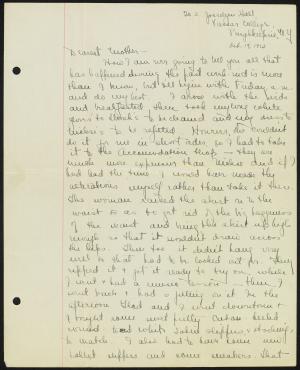 Josselyn Hall
Vassar College,
Poughkeepsie, N.Y.
Dearest Mother -
How I am ever going to tell you all that
has happened during the past week end is more
than I know, but I'll begin with Friday a.m.
and do my best. I arose with the birds
and breakfasted then took my long white
to be cleaned and my dress to
to be refitted. However, she couldn't
do it for me in short order, so I had to take
it to the shop - They are
much more expensive than and if I
had had the time I would have made the
alterations myself rather than take it there.
The woman raised the skirt on to the
waist so as to get rid of the bigness
of the waist and hung the skirt up high
enough so that it wouldn't draw across
the hips. There too it didn't hang very
well so that had to be looked out for. They
ripped it & got it ready to try on, while
I went & had a music lesson - then I
went back & had a fitting on it. In the
afternoon and I went downtown &
I bought some pretty Cuban heeled
white satin slippers & stockings
to match. I also had to have some new
ballet slippers and some sneakers. That